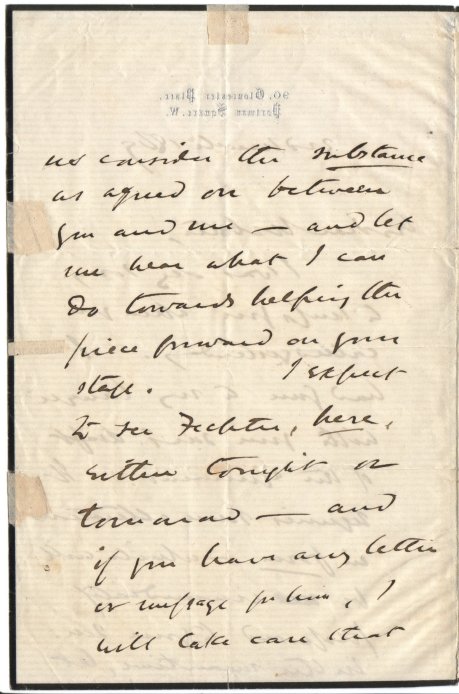 90, Gloucester Place,
Portman Square. W.
us consider the substance
as agreed on between
you and me — and let
me hear what I can
do towards helping the
piece forward on your
stage. I expect
to see Fechter, here,
either tonight or
tomorrow — and
if you have any letter
or message for him, I
will take care that